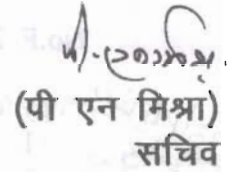 (पी एन मिश्रा)
सचिव